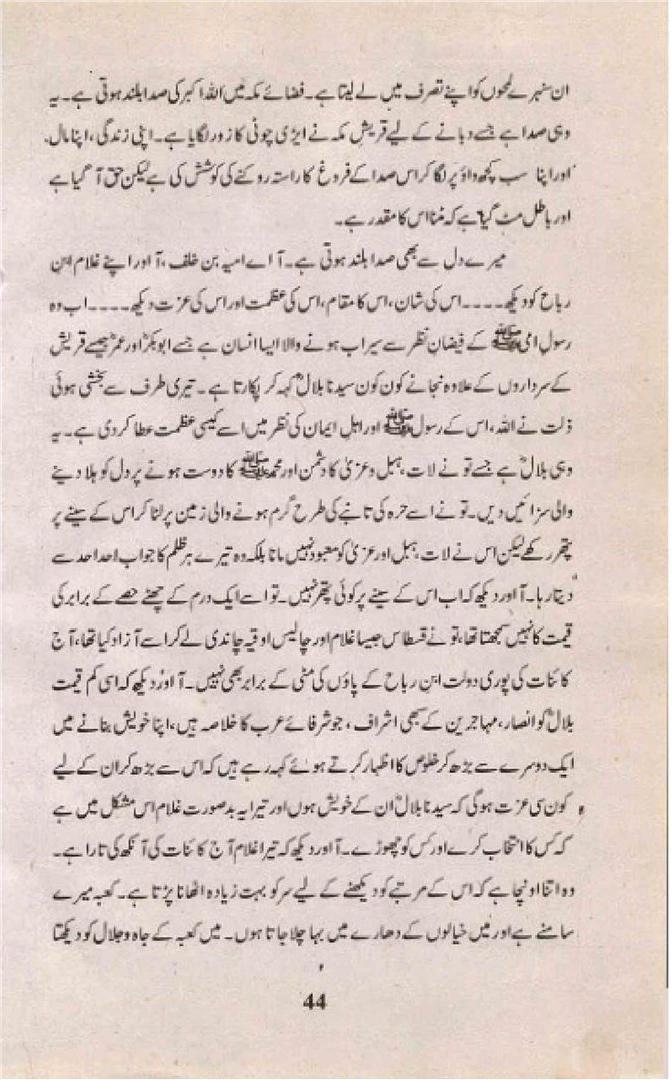 ان سنہرے لمحوں کو اپنے تصرف میں لے لیتا ہے۔ فضائے مکہ میں اللہ اکبر کی صدا بلند ہوتی ہے۔ یہ
وہی صدا ہے جسے دبانے کے لیے قریش مکہ نے ایڑی چوٹی کا زور لگایا ہے۔ اپنی زندگی، اپنا مال
اور اپنا سب کچھ داؤ پر لگا کر اس صدا کے فروغ کا راستہ روکنے کی کوشش کی ہے لیکن حق آ گیا ہے
اور باطل مٹ گیا ہے کہ مٹنا اس کا مقدر ہے۔
میرے دل سے بھی صدا بلند ہوتی ہے۔ آ اے امیہ بن خلف، آ اور اپنے غلام ابن
رباح کو دیکھ۔۔۔۔ اس کی شان، اس کا مقام، اس کی عظمت اور اس کی عزت دیکھ۔۔۔۔ اب وہ
رسول امی ﷺ کے فیضان نظر سے سیراب ہونے والا ایسا انسان ہے جسے ابوبکرؓ اور عمرؓ جیسے قریش
کے سرداروں کے علاوہ نجانے کون کون سیدنا بلالؓ کہہ کر پکارتا ہے۔ تیری طرف سے بخشی ہوئی
ذلت نے اللہ، اس کے رسول ﷺ اور اہل ایمان کی نظر میں اسے کیسی عظمت عطا کر دی ہے۔ یہ
وہی بلالؓ ہے جسے تو نے لات، ہبل و عزیٰ کا دشمن اور محمد ﷺ کا دوست ہونے پر دل کو ہلا دینے
والی سزائیں دیں۔ تو نے اسے حرہ کی تانبے کی طرح گرم ہونے والی زمین پر لٹا کر اس کے سینے پر
پتھر رکھے لیکن اس نے لات، ہبل اور عزیٰ کو معبود نہیں مانا بلکہ وہ تیرے ہر ظلم کا جواب احد احد سے
دیتا رہا۔ آ اور دیکھ کہ اب اس کے سینے پر کوئی پتھر نہیں۔ تو اسے ایک درم کے چھٹے حصے کے برابر کی
قیمت کا نہیں سمجھتا تھا، تو نے قسطاس جیسا غلام اور چالیس اوقیہ چاندی لے کر اسے آزاد کیا تھا، آج
کائنات کی پوری دولت ابن رباح کے پاؤں کی مٹی کے برابر بھی نہیں۔ آ اور دیکھ کہ اسی کم قیمت
بلالؓ کو انصار، مہاجرین کے سبھی اشراف، جو شرفائے عرب کا خلاصہ ہیں، اپنا خویش بنانے میں
ایک دوسرے سے بڑھ کر خلوص کا اظہار کرتے ہوئے کہہ رہے ہیں کہ اس سے بڑھ کر ان کے لیے
کون سی عزت ہوگی کہ سیدنا بلالؓ ان کے خویش ہوں اور تیرا یہ بدصورت غلام اس مشکل میں ہے
کہ کس کا انتخاب کرے اور کس کو چھوڑے۔ آ اور دیکھ کہ تیرا غلام آج کائنات کی آنکھ کی تارا ہے۔
وہ اتنا اونچا ہے کہ اس کے مرتبے کو دیکھنے کے لیے سر کو بہت زیادہ اٹھانا پڑتا ہے۔ کعبہ میرے
سامنے ہے اور میں خیالوں کے دھارے میں بہا چلا جاتا ہوں۔ میں کعبہ کے جاہ و جلال کو دیکھتا
44